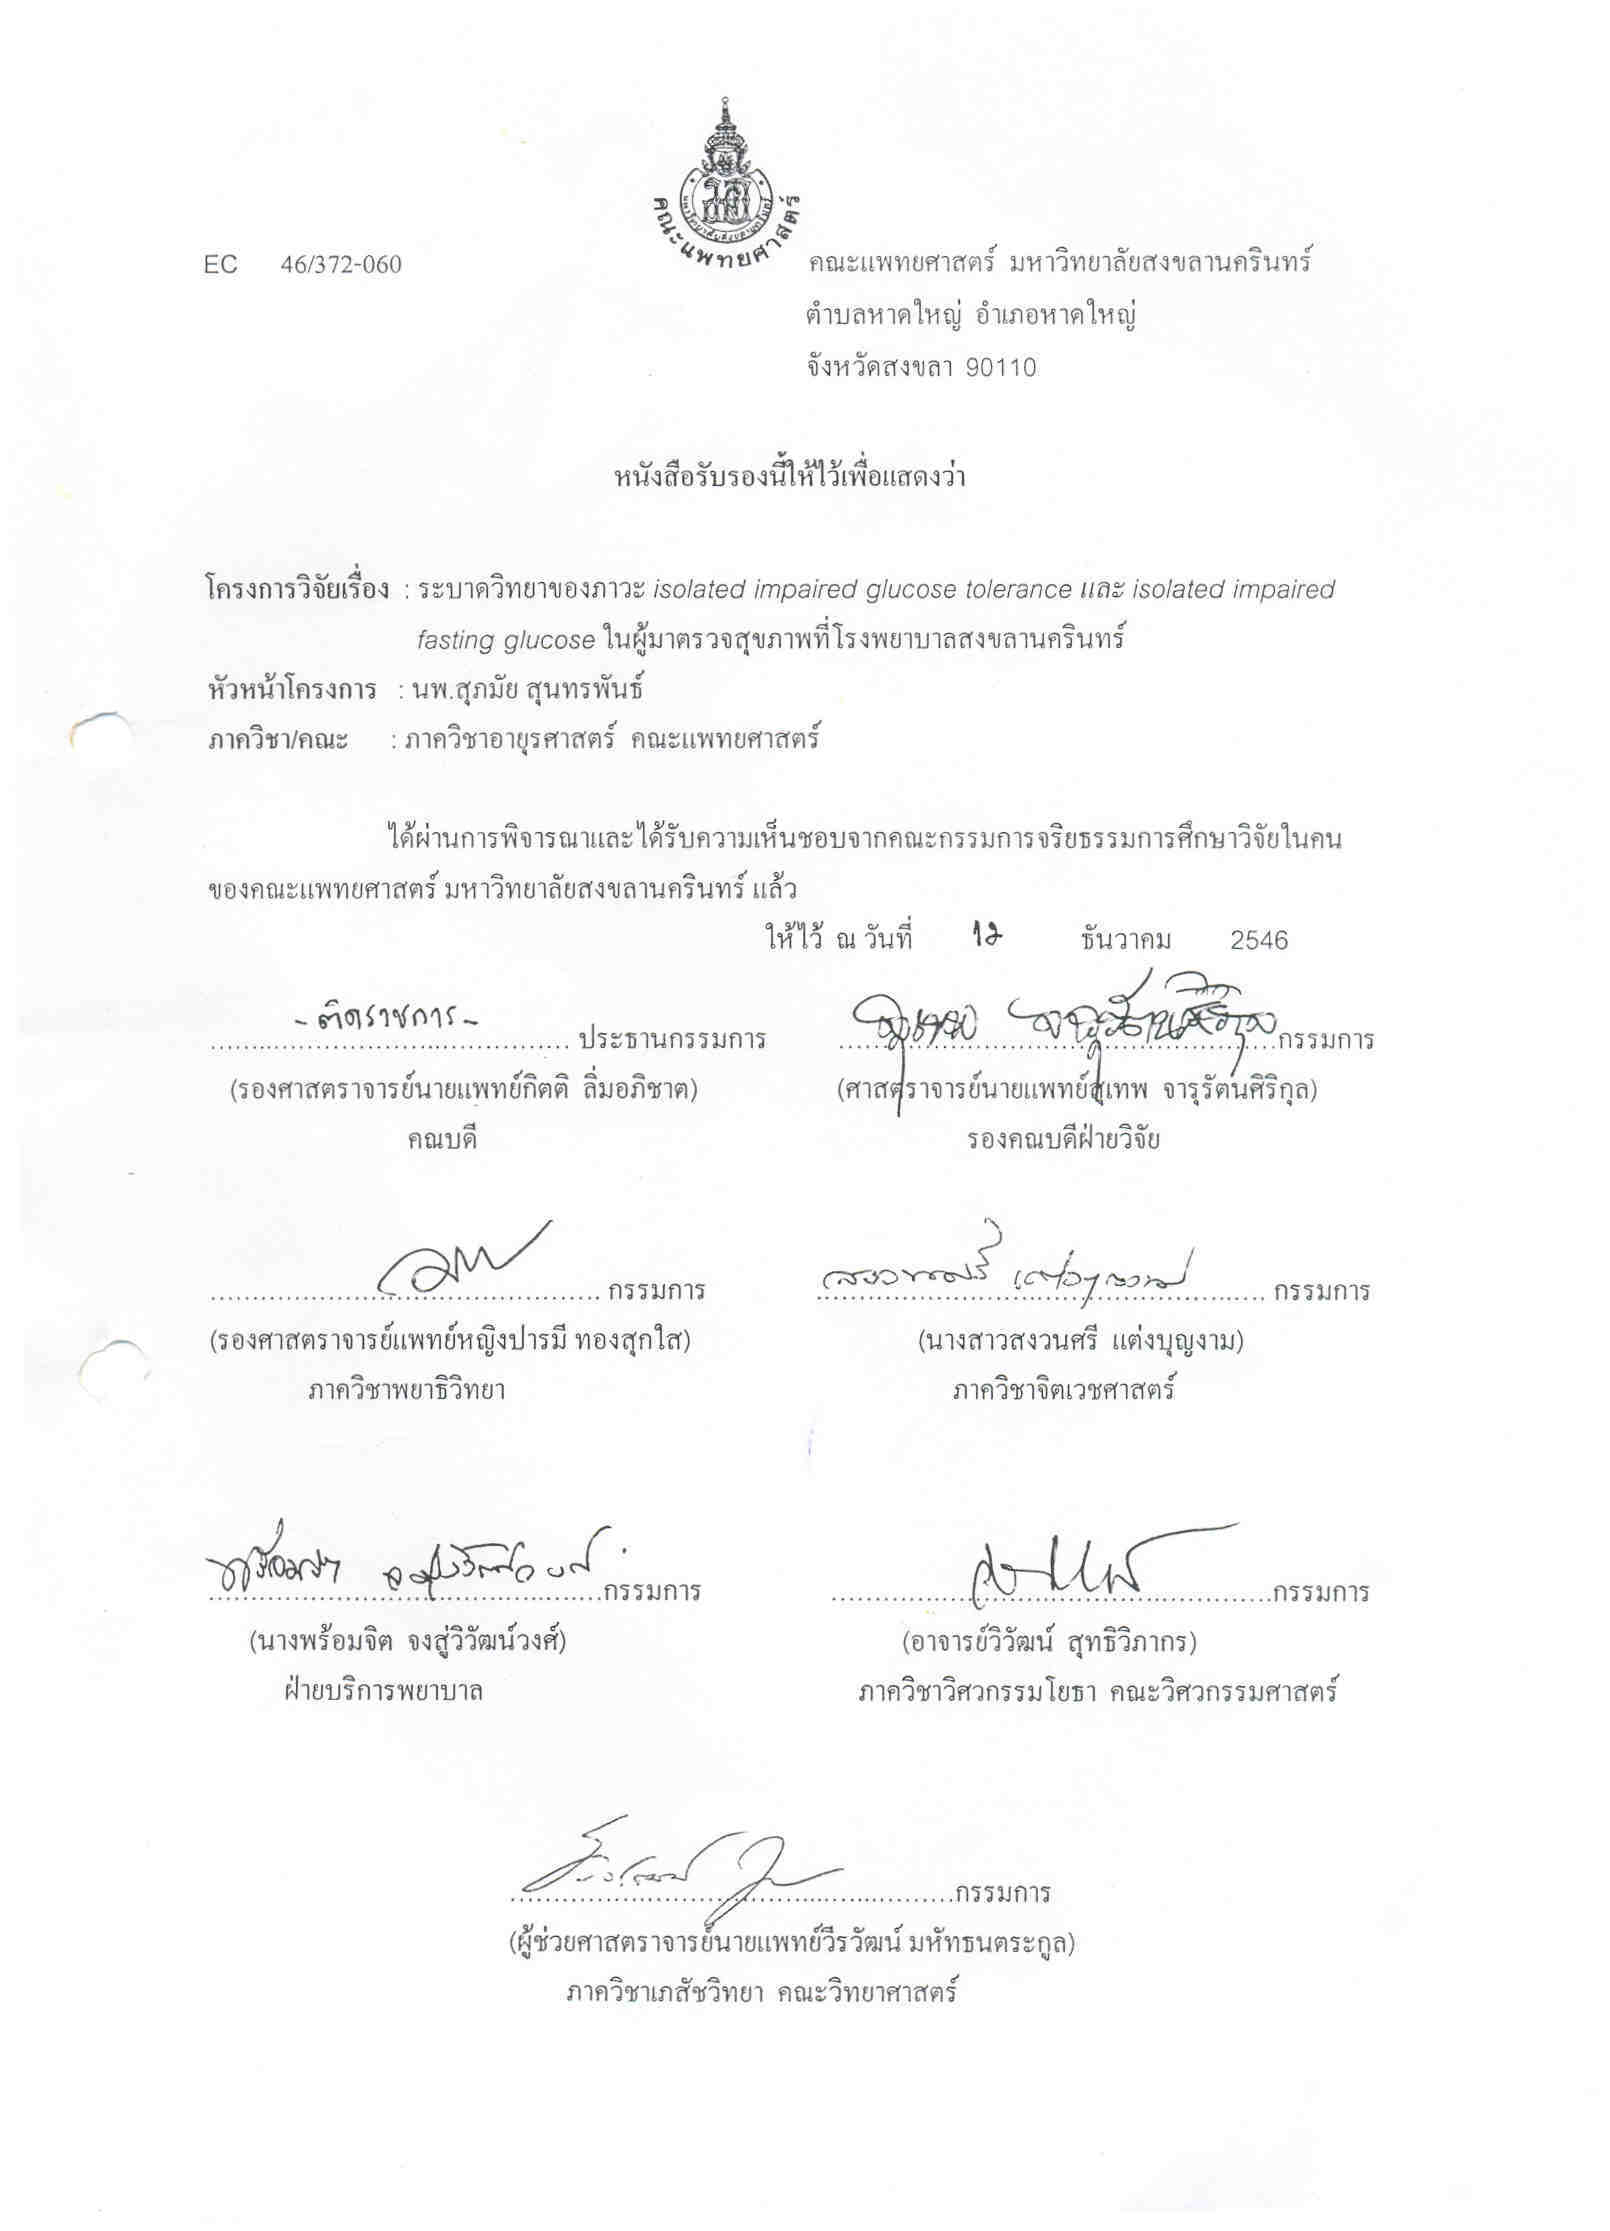 คณะแพทยศาสตร์
EC 46/372-060
คณะแพทยศาสตร์ มหาวิทยาลัยสงขลานครินทร์
ตำบลหาดใหญ่ อำเภอหาดใหญ่
จังหวัดสงขลา 90110
หนังสือรับรองนี้ให้ไว้เพื่อแสดงว่า
โครงการวิจัยเรื่อง : ระบาดวิทยาของภาวะ isolated impaired glucose tolerance และ isolated impaired
fasting glucose ในผู้มาตรวจสุขภาพที่โรงพยาบาลสงขลานครินทร์
หัวหน้าโครงการ : นพ.สุภมัย สุนทรพันธ์
ภาควิชา/คณะ : ภาควิชาอายุรศาสตร์ คณะแพทยศาสตร์
ได้ผ่านการพิจารณาและได้รับความเห็นชอบจากคณะกรรมการจริยธรรมการศึกษาวิจัยในคน
ของคณะแพทยศาสตร์ มหาวิทยาลัยสงขลานครินทร์ แล้ว
ให้ไว้ ณ วันที่ 12 ธันวาคม 2546
- ติดราชการ -
ประธานกรรมการ กรรมการ
(รองศาสตราจารย์นายแพทย์กิตติ ลิ่มอภิชาต) (ศาสตราจารย์นายแพทย์สุเทพ จารุรัตนศิริกุล)
คณบดี รองคณบดีฝ่ายวิจัย
กรรมการ กรรมการ
(รองศาสตราจารย์แพทย์หญิงปารมี ทองสุกใส) (นางสาวสงวนศรี แต่งบุญงาม)
ภาควิชาพยาธิวิทยา ภาควิชาจิตเวชศาสตร์
กรรมการ กรรมการ
(นางพร้อมจิต จงสู่วิวัฒน์วงศ์) (อาจารย์วิวัฒน์ สุทธิวิภากร)
ฝ่ายบริการพยาบาล ภาควิชาวิศวกรรมโยธา คณะวิศวกรรมศาสตร์
กรรมการ
(ผู้ช่วยศาสตราจารย์นายแพทย์วีรวัฒน์ มหัทธนตระกูล)
ภาควิชาเภสัชวิทยา คณะวิทยาศาสตร์